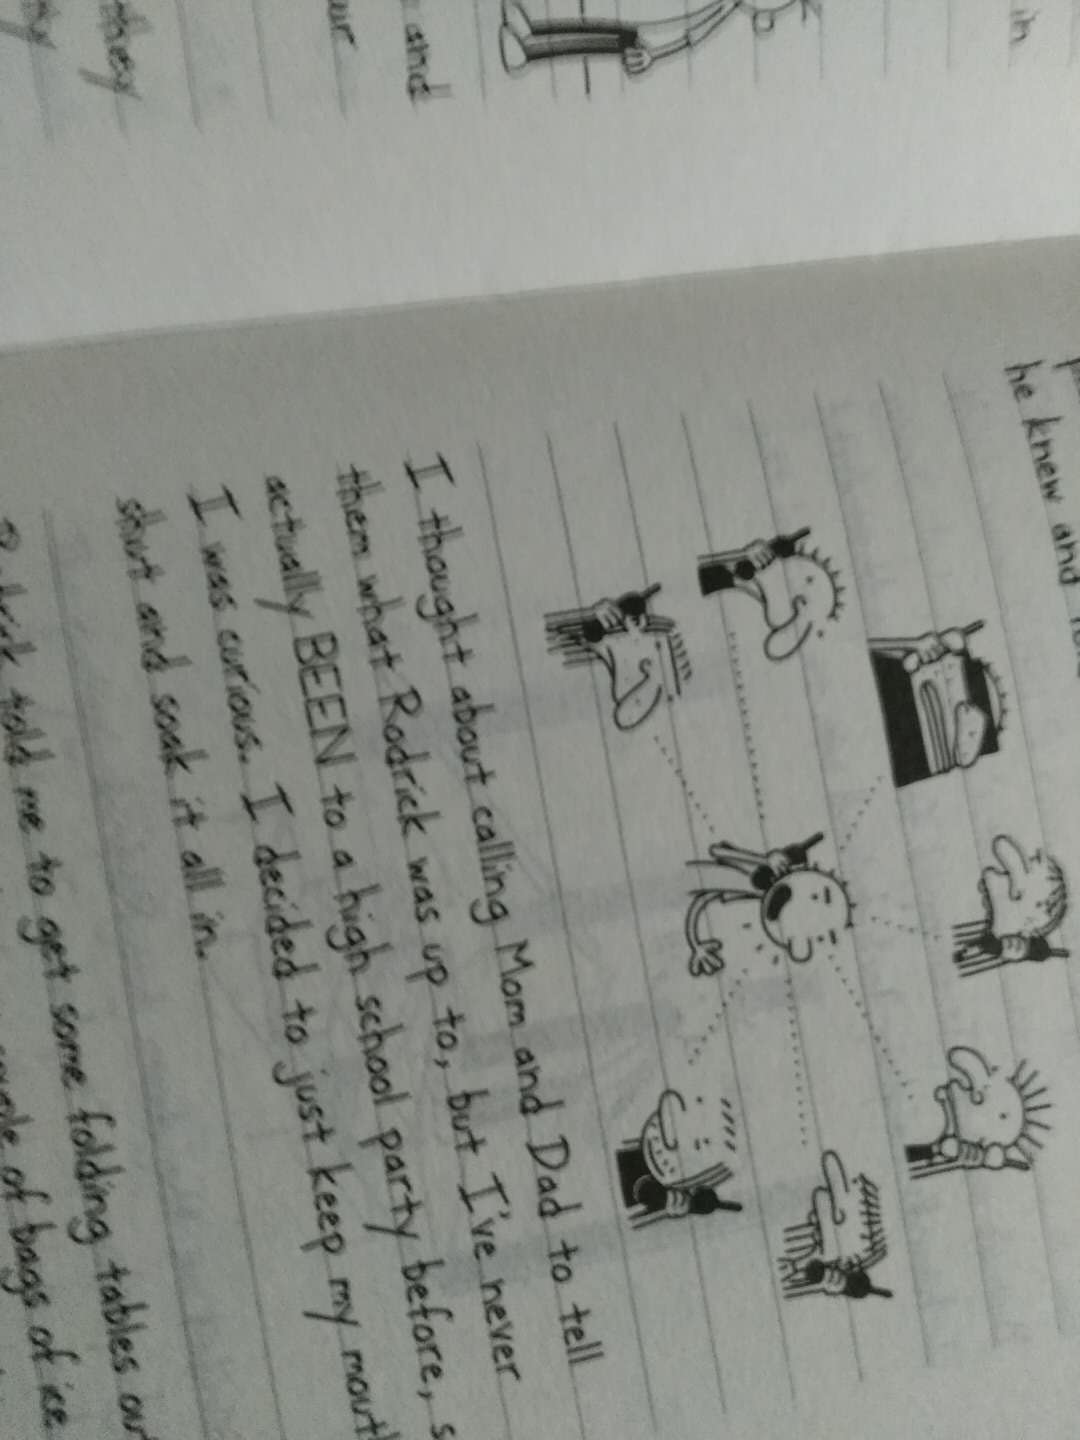 they
ur
and
in
he knew and
I thought about calling Mom and Dad to tell
them what Rodrick was up to, but I've never
actually BEEN to a high school party before, s
I was curious. I decided to just keep my mouth
shut and soak it all in.
told me to get some folding tables ou
of bags of ice